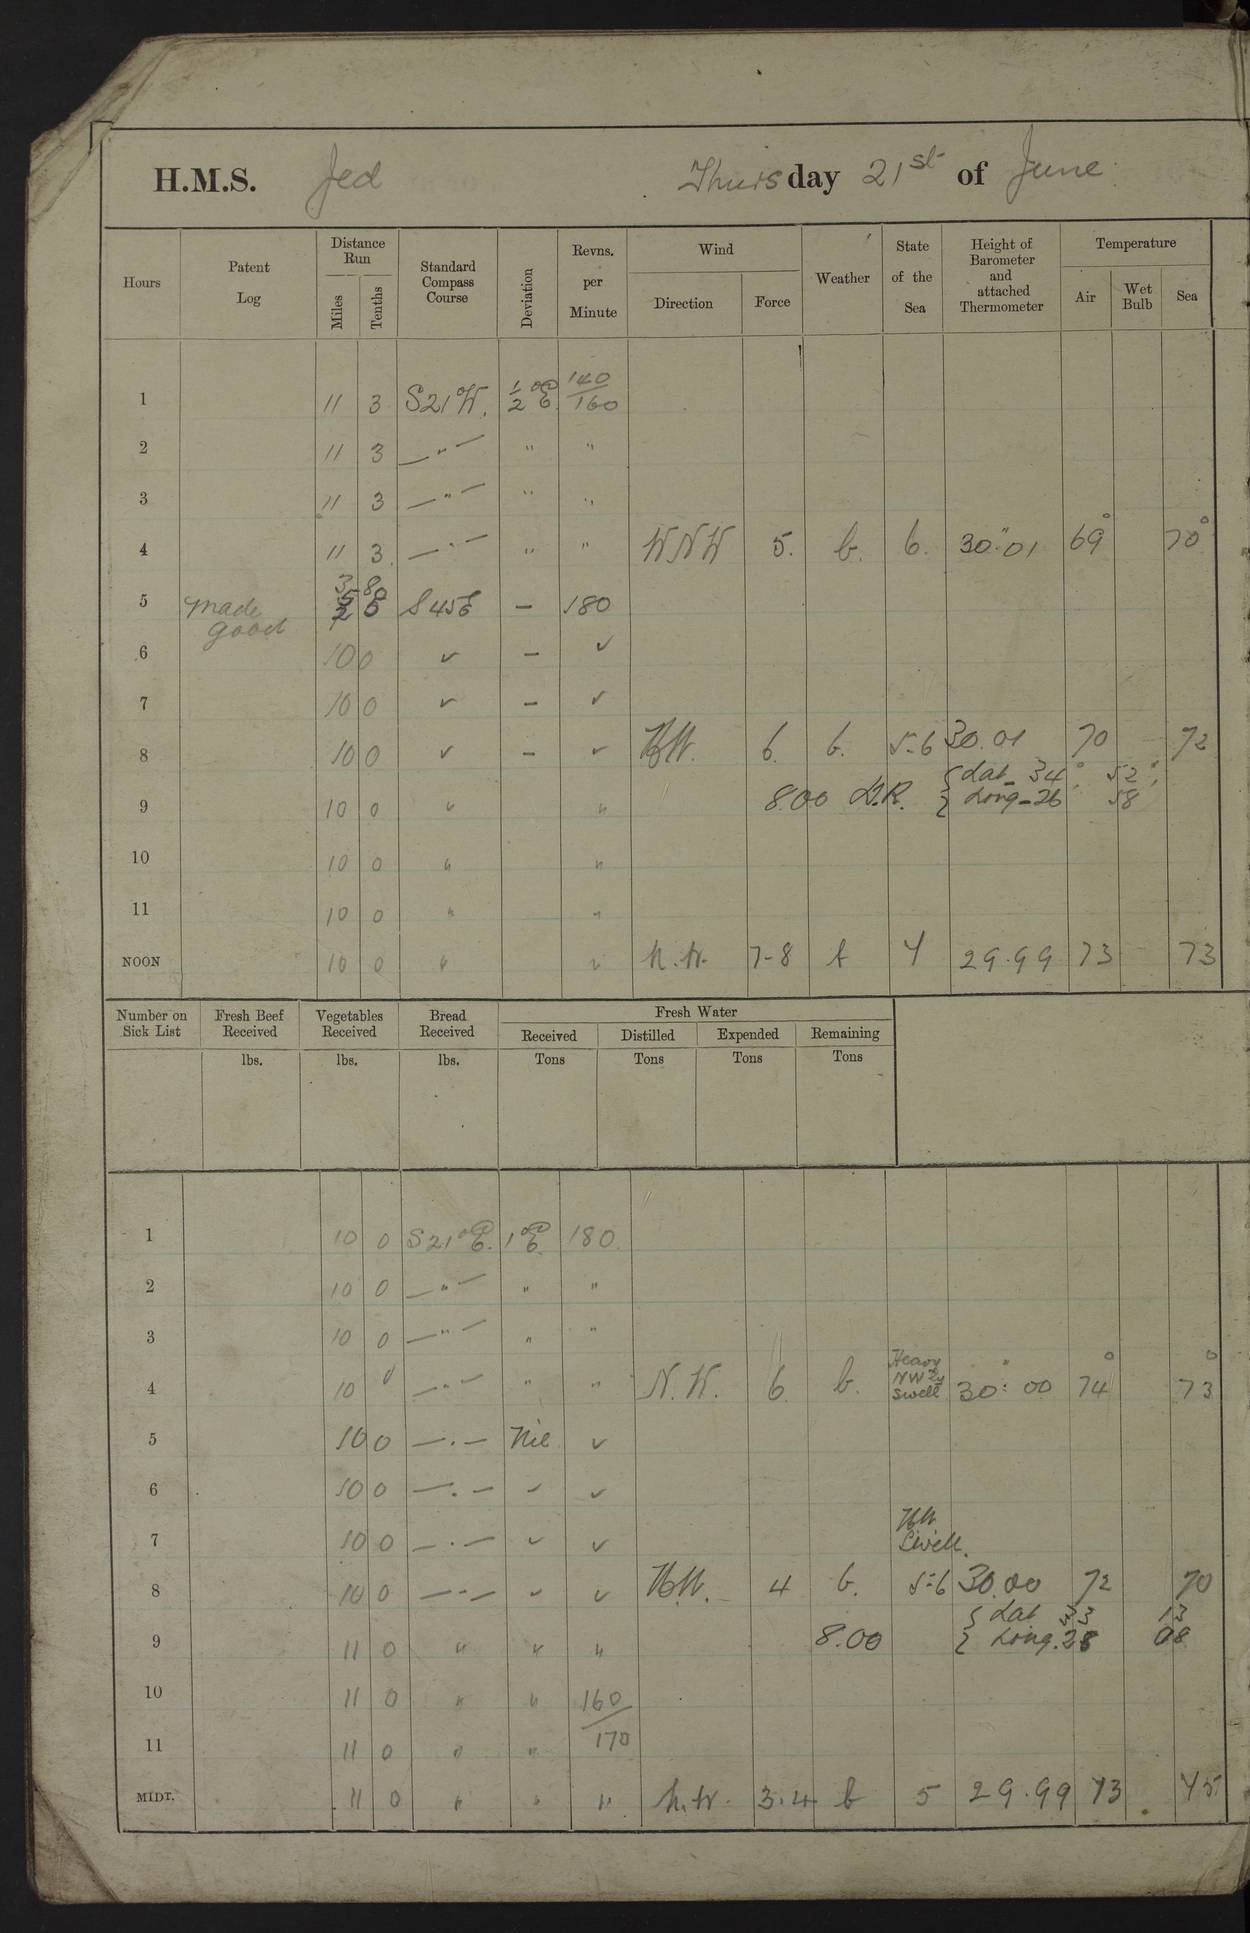 H.M.S. Jed Thursday 21st of June
Hours Patent Log Distance Run Miles Tenths Standard Compass Course Deviation Revns. per Minute Wind Direction Force Weather State of the Sea Height of Barometer and attached Thermometer Temperature Air Wet Bulb Sea
1 11 3 S21°W. 1/2°E 140/160
2 11 3 —"— " "
3 11 3 —"— " "
4 11 3 —"— " " WNW 5. b. 6. 30.01 69° 70°
5 made good S45E — 180
6 10 0 ✓ — ✓
7 10 0 ✓ — ✓
8 10 0 ✓ — ✓ NW. 6. b. 5-6 30.01 70 72
8.00 D.R. { Lat_ 34° 52'
9 10 0 " " { Long_ 26 58
10 10 0 " "
11 10 0 " "
NOON 10 0 " " N.W. 7-8 b 7 29.99 73 73
Number on Sick List Fresh Beef Received Vegetables Received Bread Received Fresh Water
Received Distilled Expended Remaining
lbs. lbs. lbs. Tons Tons Tons Tons
1 10 0 S21°E. 1°E 180
2 10 0 —"— " "
3 10 0 —"— " "
4 10 0 —"— " " N.W. 6 b. Heavy NWly swell 30.00 74° 73°
5 10 0 —"— Nil ✓
6 10 0 —"— ✓ ✓
7 10 0 —"— ✓ ✓ NW Swell.
8 10 0 —"— ✓ ✓ NW. 4 b. 5-6 30.00 72 70
{ Lat 33 13
9 11 0 " " " 8.00 { Long. 28 08
10 11 0 " " 160/
11 11 0 " " 170
MIDT. 11 0 " " " N.W. 3.4 b 5 29.99 73 75